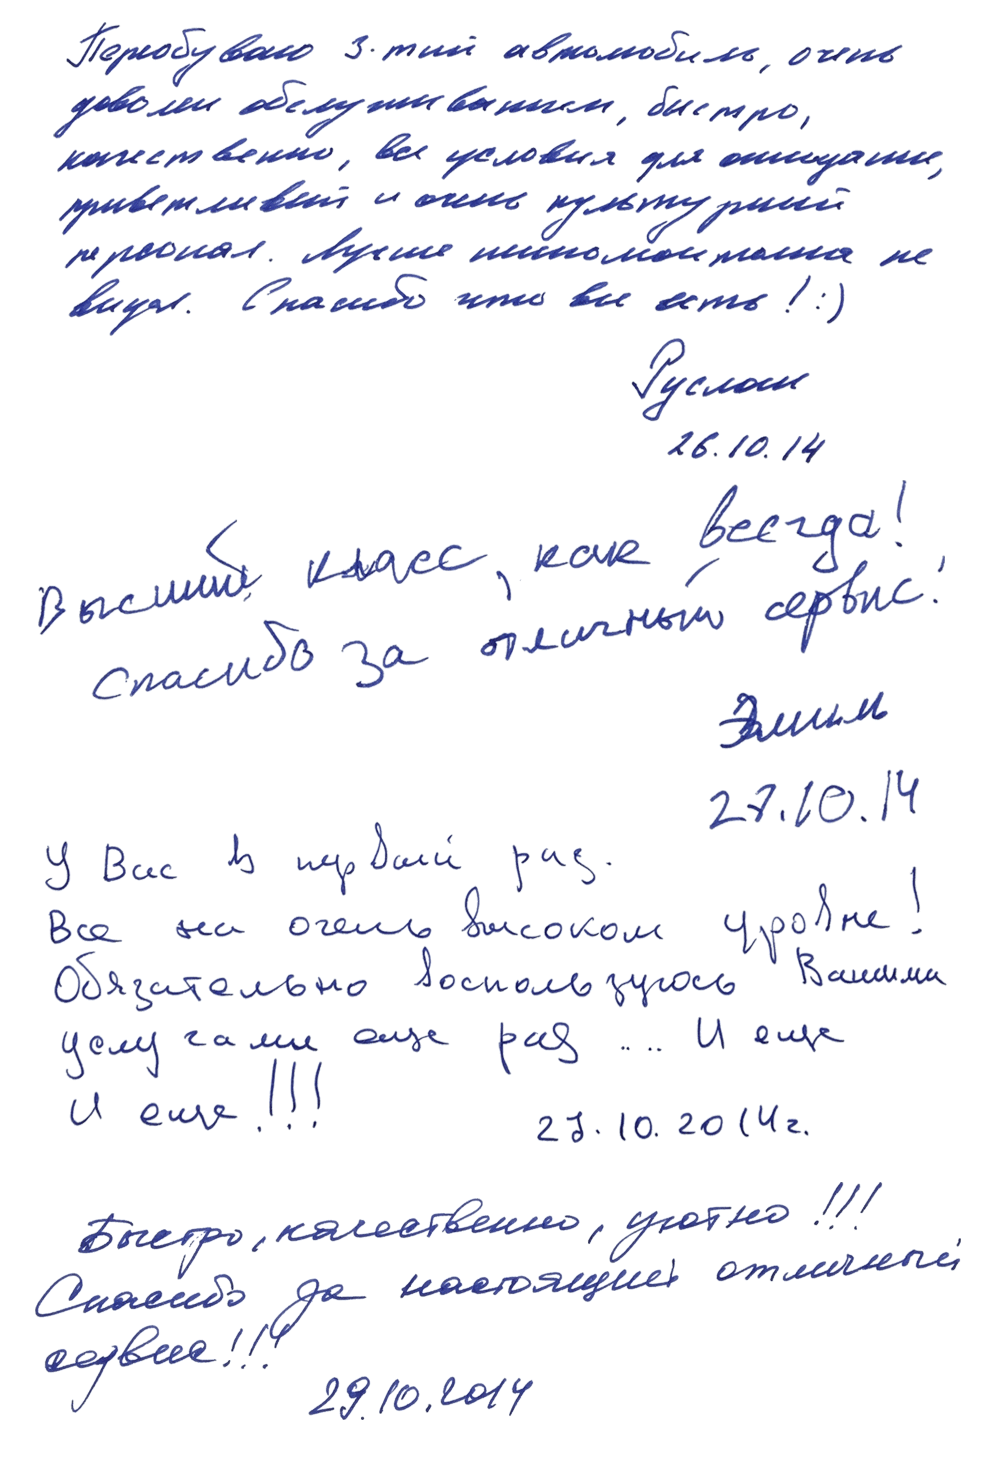 Переобуваю 3-тий автомобиль, очень
доволен обслуживанием, быстро,
качественно, все условия для ожидания,
приветливый и очень культурный
персонал. Лучше шиномонтажа не
видел. Спасибо что вы есть! :)
Руслан
26.10.14
Высший класс, как всегда!
Спасибо за отличный сервис!
Эмиль
27.10.14
У Вас в первый раз.
Все на очень высоком уровне!
Обязательно воспользуюсь Вашими
услугами еще раз .... И еще
И еще!!!
27.10.2014г.
Быстро, качественно, уютно!!!
Спасибо за настоящий отличный
сервис!!!
29.10.2014